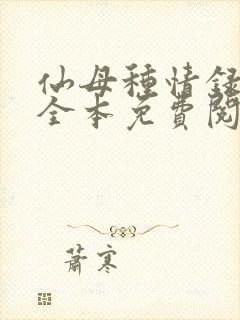 仙母種情録
全本免費閱
蕭寒